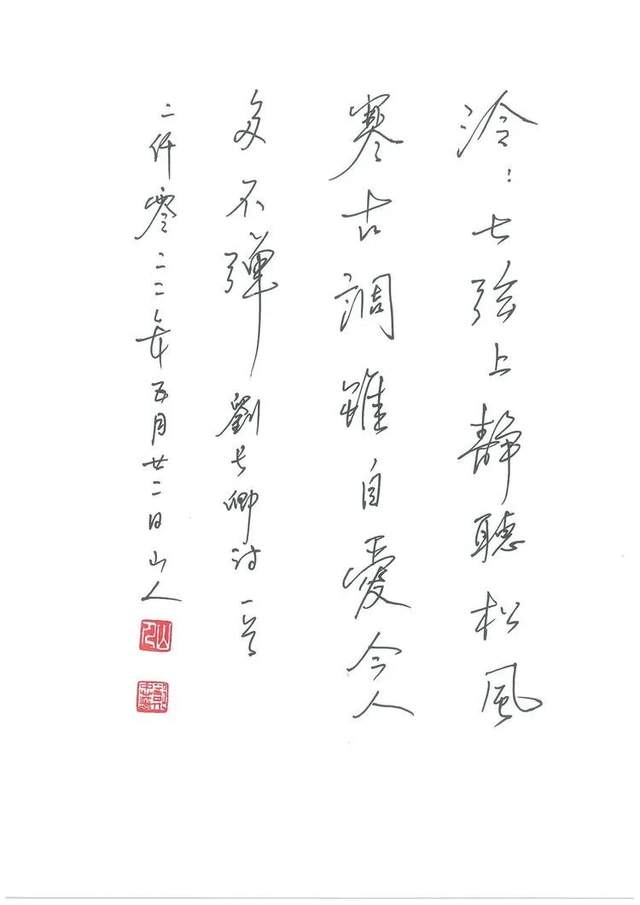 泠：七弦上靜聽松風
寒古調雖自愛今人
多不彈 劉長卿詩一首
二仟零二二年五月廿二日山人
山人